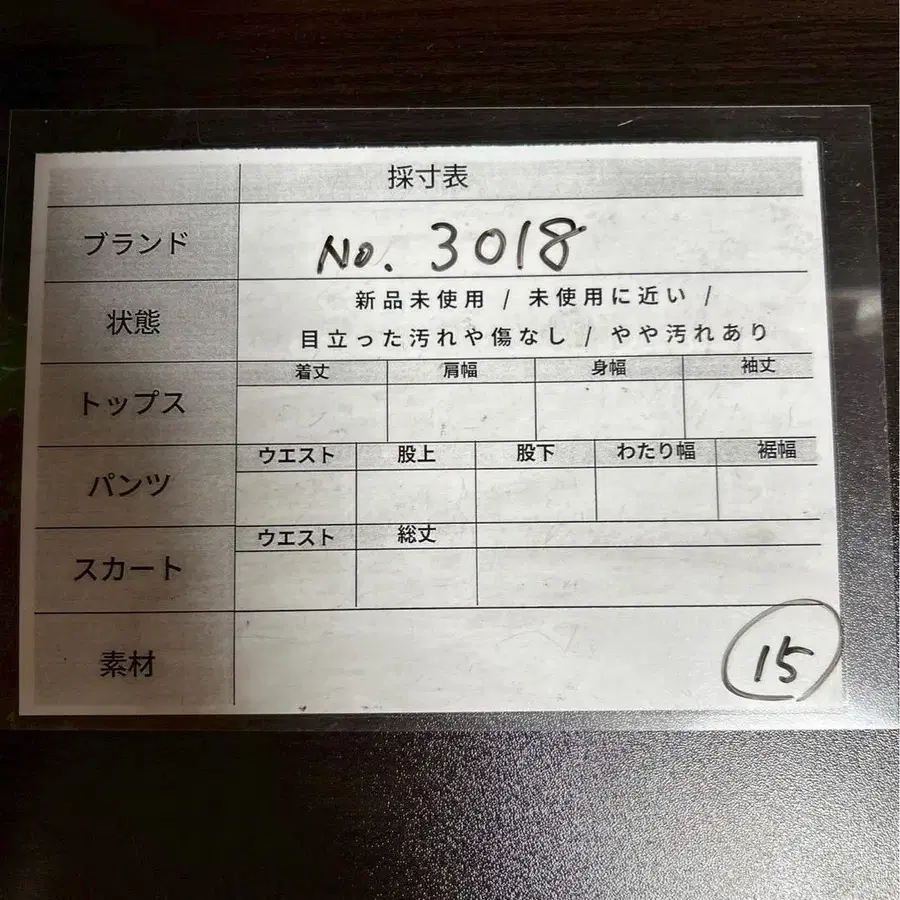 採寸表
ブランド No. 3018
状態 新品未使用 / 未使用に近い /
目立った汚れや傷なし / やや汚れあり
トップス 着丈 肩幅 身幅 袖丈
パンツ ウエスト 股上 股下 わたり幅 裾幅
スカート ウエスト 総丈
素材 15